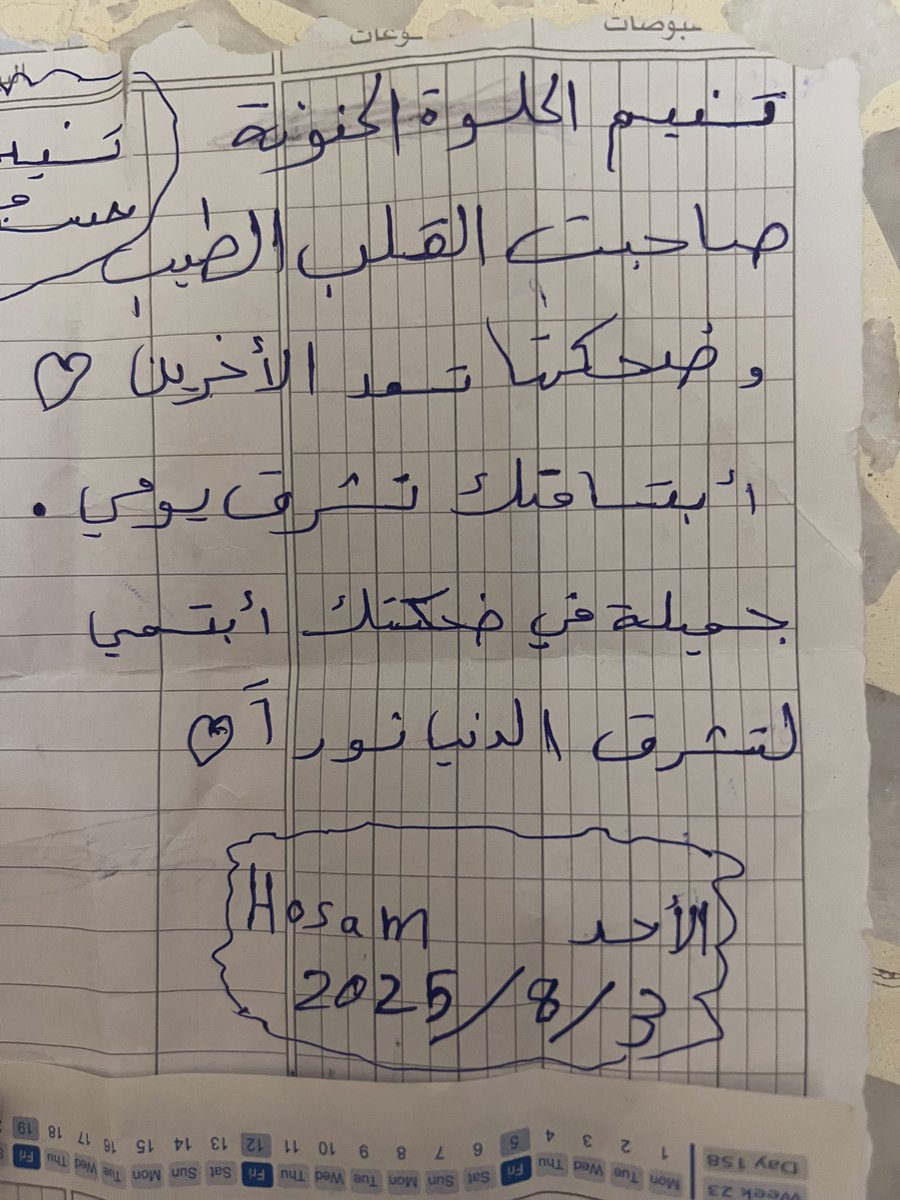 تنيم الحلوة الحنونة
صاحبت القلب الطيب
وضحكتها تسعد الأخرين ♡
أبتسامتك تشرق يومي .
جميلة في ضحكتك أبتسمي
لتشرق الدنيا نور آ ♡
الأحد Hosam
2025/8/3
Day 158
Week 23
1 2 3 4 5 6 7 8 9 10 11 12 13 14 15 16 17 18 19
Mon Tue Wed Thu Fri Sat Sun Mon Tue Wed Thu Fri Sat Sun Mon Tue Wed Thu Fri